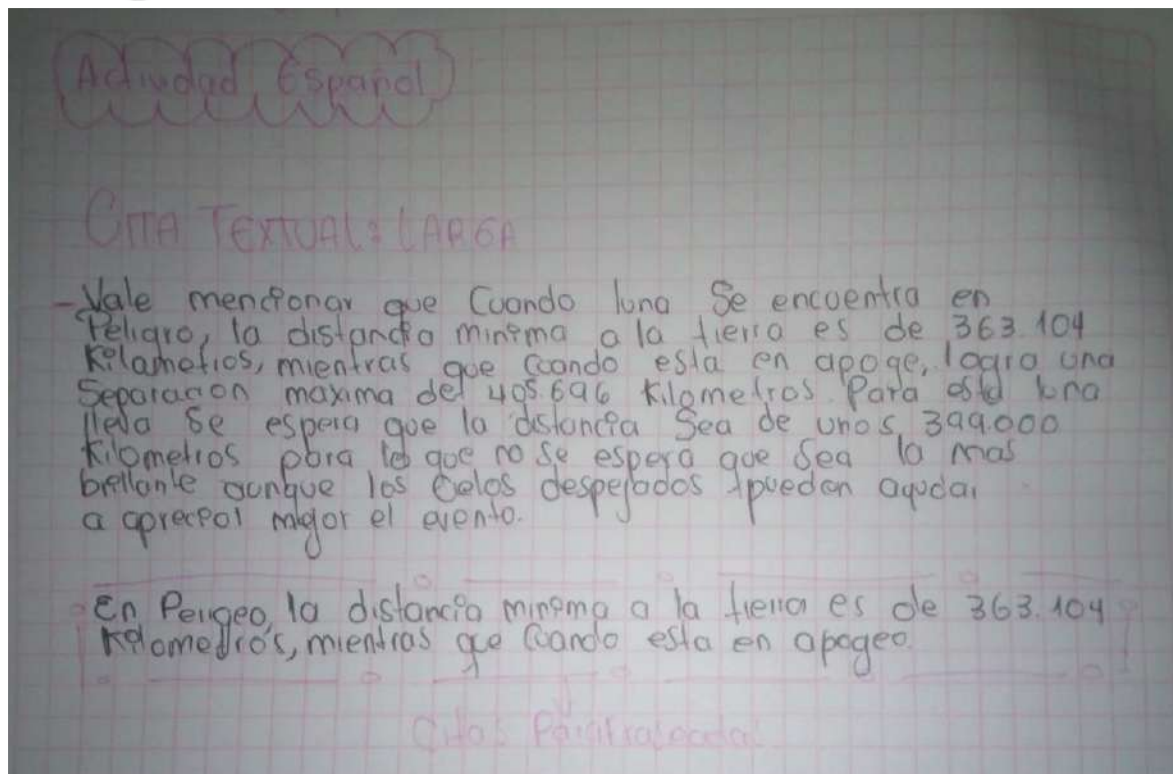 Actividad Español
CITA TEXTUAL: LARGA
- Vale mencionar que Cuando luna Se encuentra en
Peligro, la distancia minima a la tierra es de 363.104
Kilametros, mientras que cuando esta en apoge, logra una
Separacion maxima del 405.696 Kilometros. Para esta luna
lleva Se espera que la distancia Sea de unos 399.000
Kilometros para lo que no se espera que sea la mas
brillante aunque los Cielos despejados pueden ayudar
a apreciar mejor el evento.
En Perigeo, la distancia minima a la tierra es de 363.104
Kilometros, mientras que cuando esta en apogeo.
Citas Parafraseadas